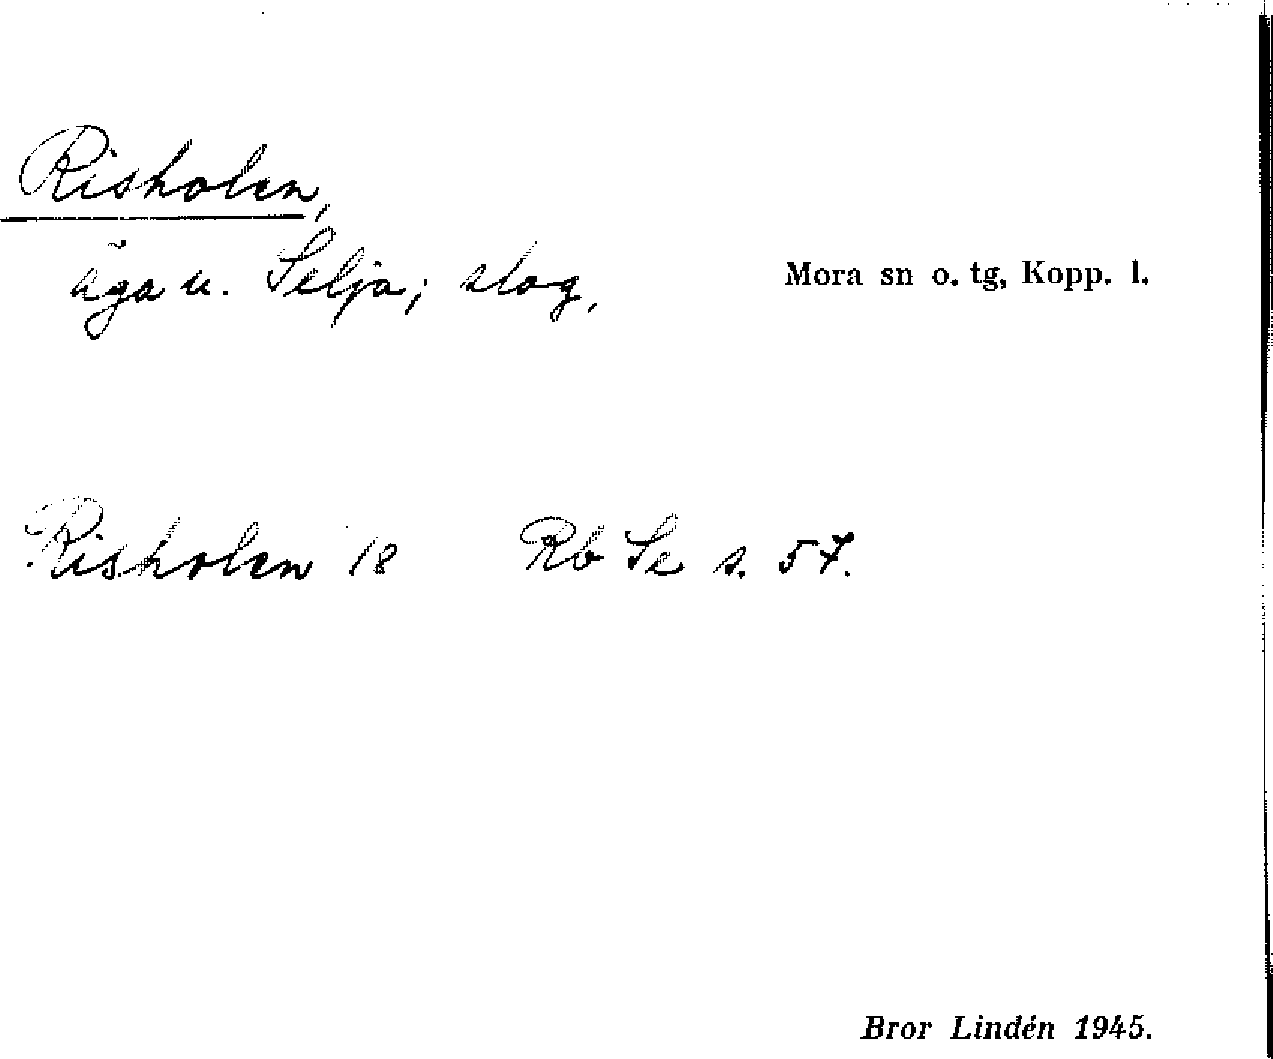 Risholen,
äga u. Selja; slog.
Mora sn o. tg, Kopp. l.
Risholen 18 Rb Se s. 57.
Bror Lindén 1945.